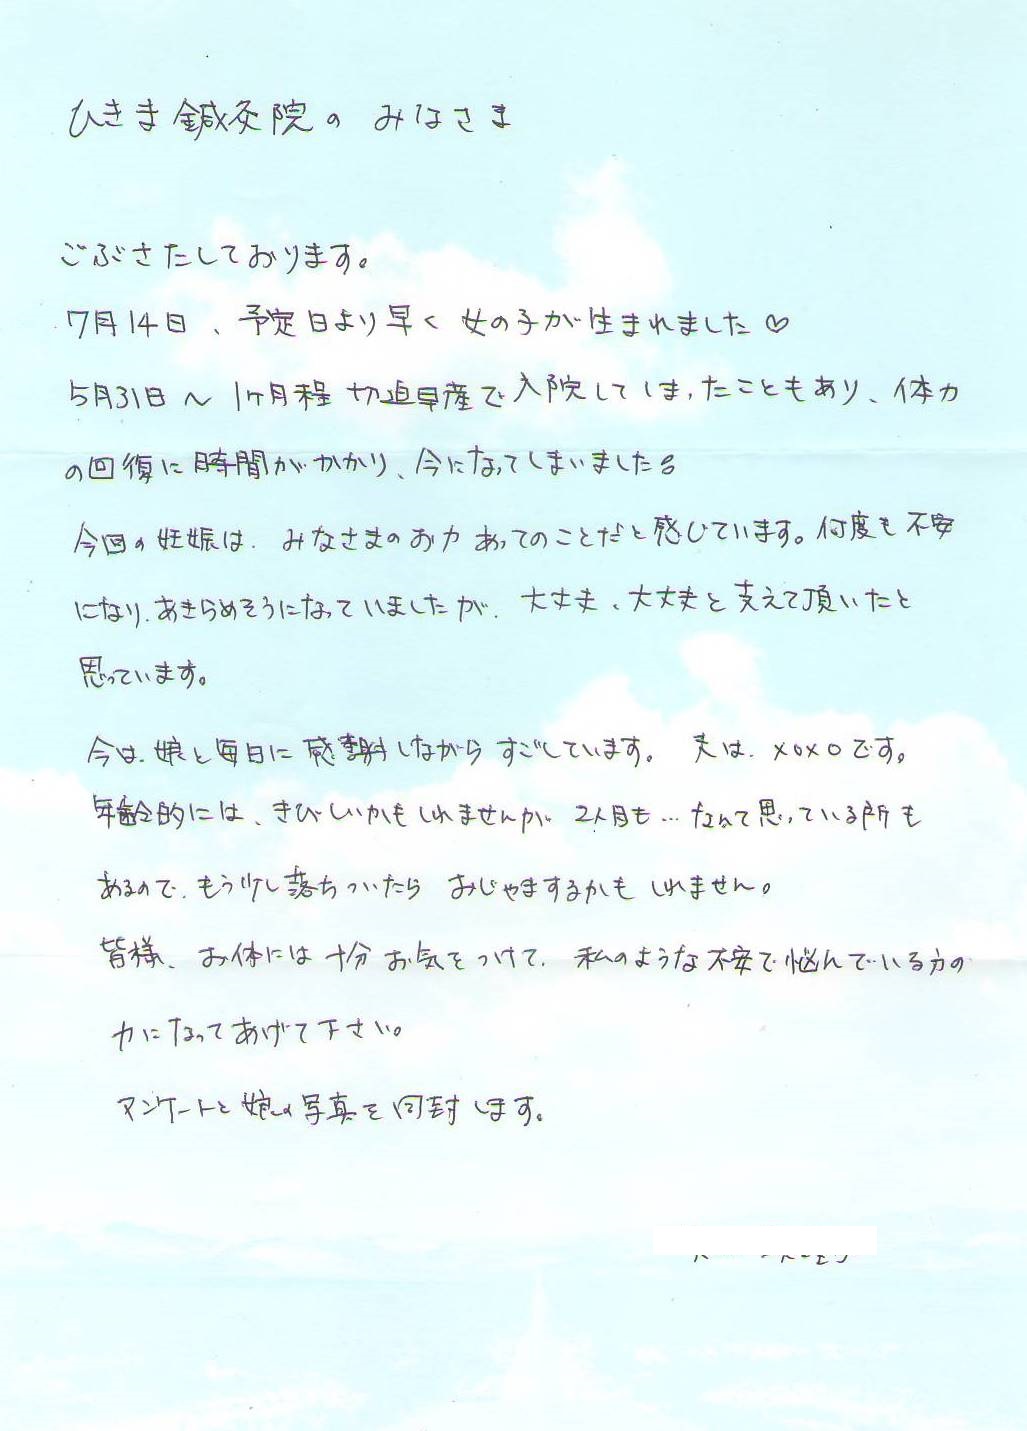 ひきま鍼灸院の みなさま
ごぶさたしております。
7月14日、予定日より早く 女の子が生まれました♡
5月31日〜 1ヶ月程 切迫早産で入院してしまったこともあり、体力
の回復に時間がかかり、今になってしまいました。
今回の妊娠は、みなさまのお力あってのことだと感じています。何度も不安
になり、あきらめそうになっていましたが、大丈夫、大丈夫と支えて頂いたと
思っています。
今は、娘と毎日に感謝しながらすごしています。 夫は、メロメロです。
年齢的には、きびしいかもしれませんが 2人目も…なんて思っている所も
あるので、もう少し落ちついたら おじゃまするかもしれません。
皆様、お体には十分お気をつけて、私のような不安で悩んでいる方の
力になってあげて下さい。
アンケートと娘の写真を同封します。